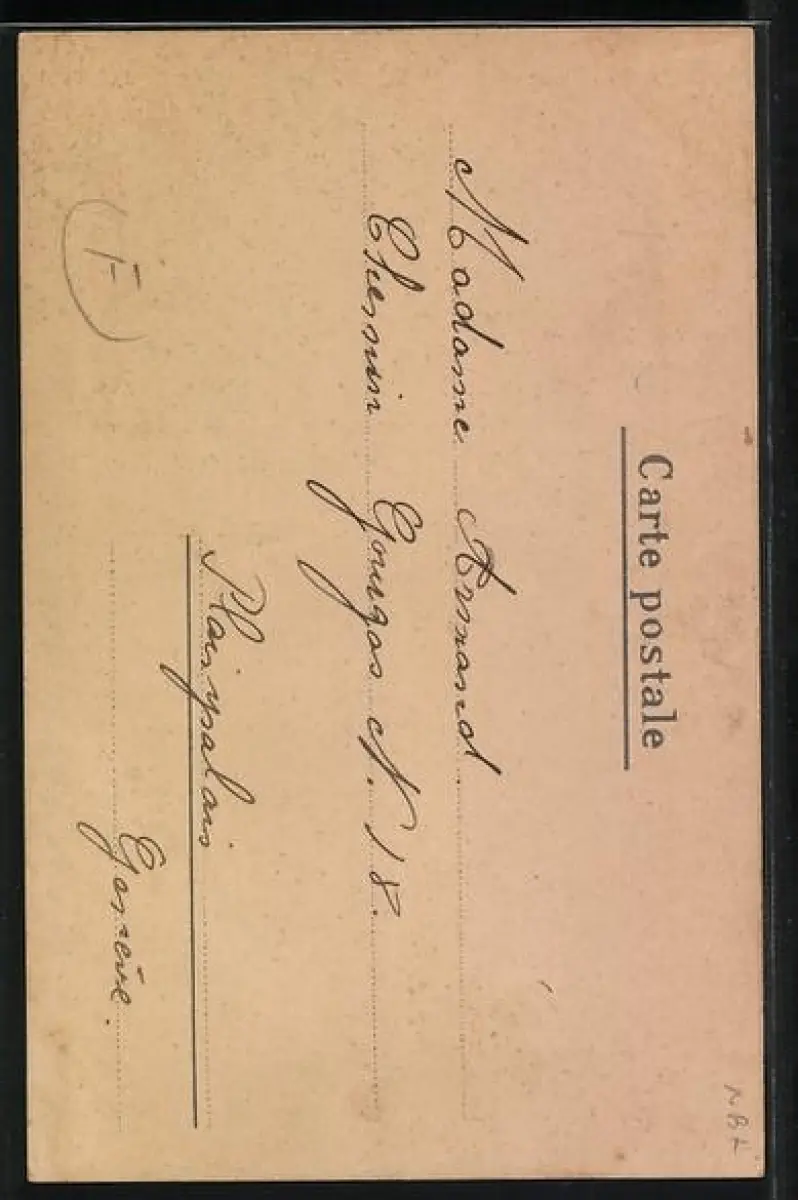 Carte postale
Madame Armand
Chemin Gourgas N. 18.
Plainpalais
Genève.
(F)